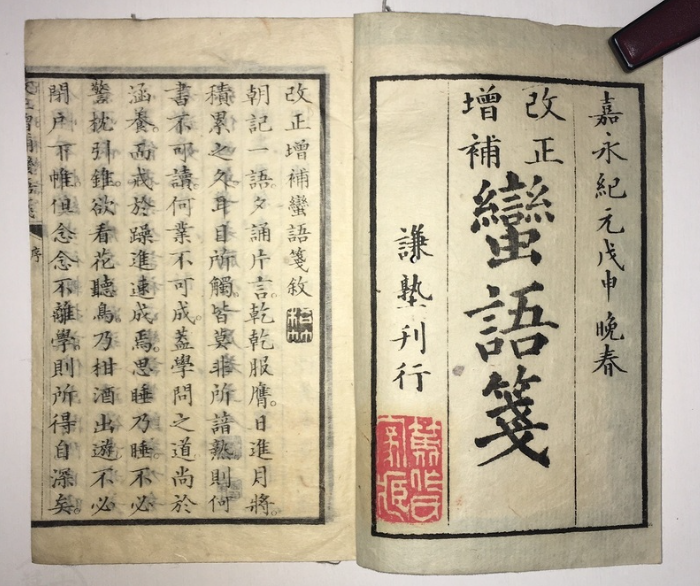 嘉永紀元戊申晚春
改正
增補
蠻語箋
謙塾刊行
改正增補蠻語箋敘
朝記一語夕誦片言乾乾服膺。日進月將。
積累之久耳目所觸皆莫非所諳熟則何
書不可讀何業不可成蓋學問之道尚於
涵養。而戒於躁進速成焉。思睡乃睡不必
警枕引錐欲看花聽鳥乃柑酒出遊不必
閉戶下帷俱念念不離學則所得自深矣。
序